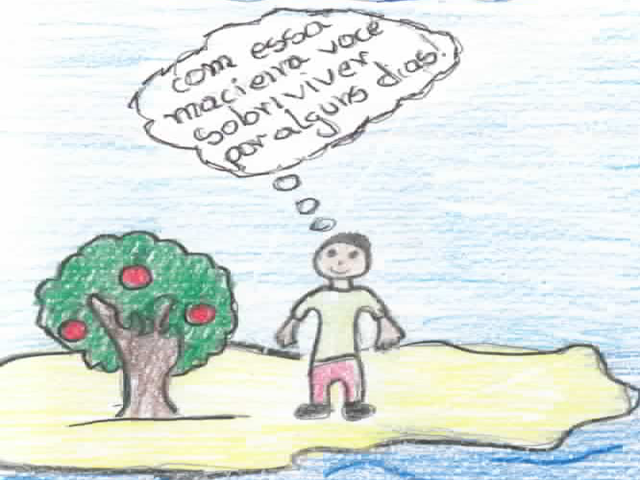 com essa
macieira você
sobriviver
por alguns dias!